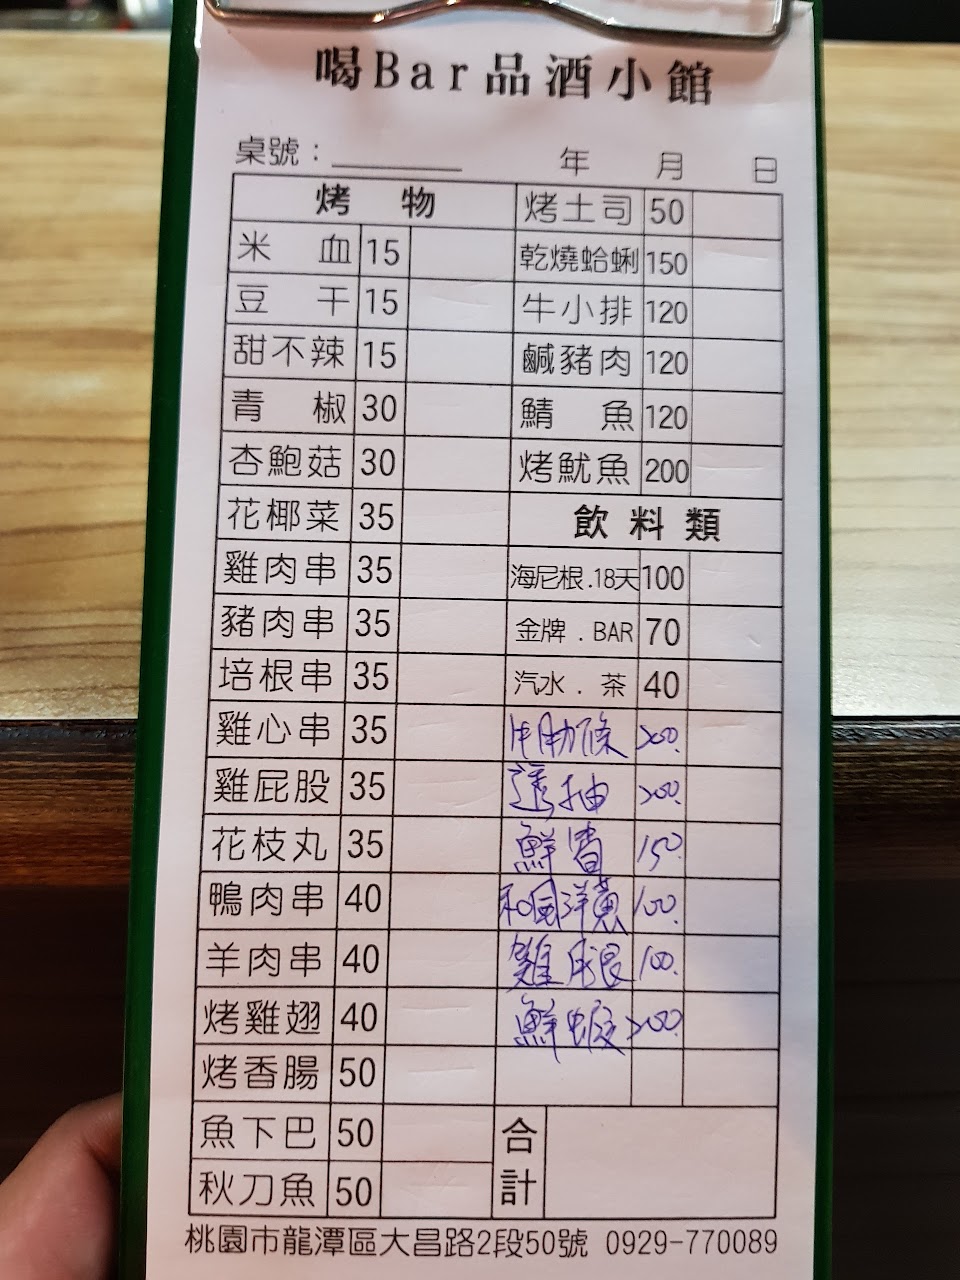 喝Bar品酒小館
桌號：______ 年 月 日
烤物
米血 15
豆干 15
甜不辣 15
青椒 30
杏鮑菇 30
花椰菜 35
雞肉串 35
豬肉串 35
培根串 35
雞心串 35
雞屁股 35
花枝丸 35
鴨肉串 40
羊肉串 40
烤雞翅 40
烤香腸 50
魚下巴 50
秋刀魚 50
烤土司 50
乾燒蛤蜊 150
牛小排 120
鹹豬肉 120
鯖魚 120
烤魷魚 200
飲料類
海尼根.18天 100
金牌.BAR 70
汽水.茶 40
牛肋條 200.
透抽 200.
鮮 150.
和風洋 100.
雞腿 100.
鮮蝦 200.
合計
桃園市龍潭區大昌路2段50號 0929-770089